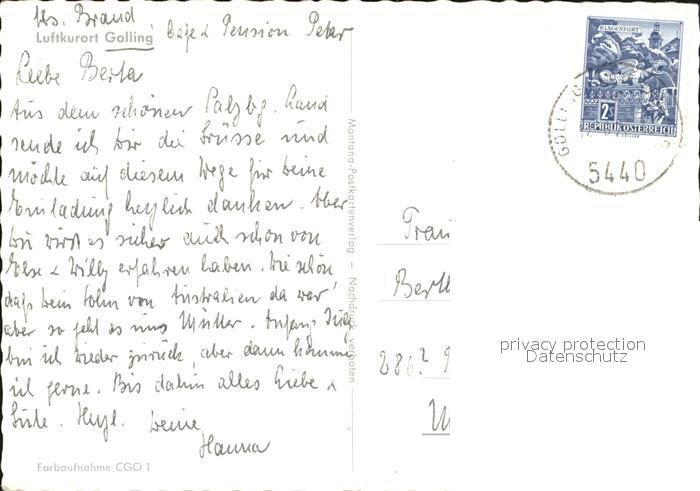 Abs. Brand
Luftkurort Golling Café & Pension Peter
Liebe Berta
Aus dem schönen Salzbg. Land
sende ich Dir die Grüsse und
möchte auf diesem Wege für Deine
Einladung herzlich danken. Aber
Du wirst es sicher auch schon von
Else & Willy erfahren haben. Wie schön,
daß Dein Sohn von Australien da war,
aber so geht es uns Mütter. Anfang Juli
bin ich wieder zurück, aber dann komme
ich gerne. Bis dahin alles Liebe &
Gute. Herzl. Deine
Hanna
Farbaufnahme CGO 1
Montana-Postkartenverlag – Nachdruck verboten
KLAGENFURT
2 S
REPUBLIK ÖSTERREICH
GOLLING
5440
Frau
Bert
286
privacy protection
Datenschutz